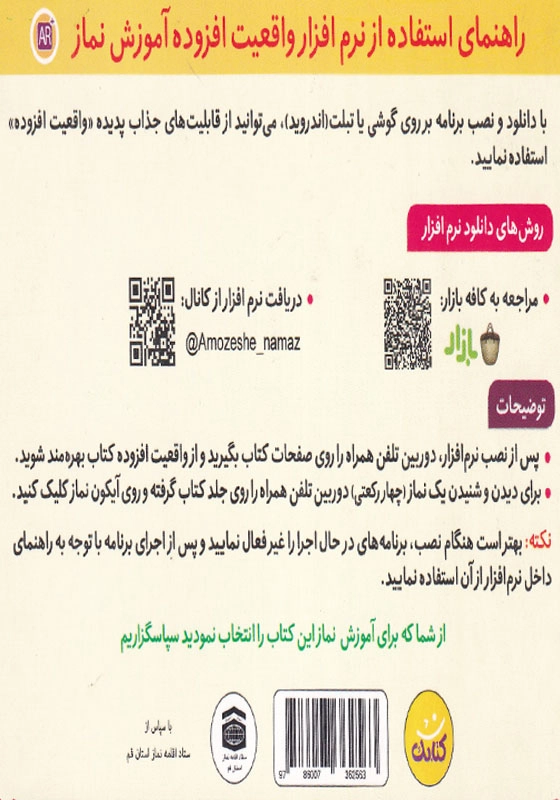 راهنمای استفاده از نرم افزار واقعیت افزوده آموزش نماز
AR
با دانلود و نصب برنامه بر روی گوشی یا تبلت(اندروید)، می‌توانید از قابلیت‌های جذاب پدیده «واقعیت افزوده»
استفاده نمایید.
روش‌های دانلود نرم افزار
• مراجعه به کافه بازار:
بازار
• دریافت نرم افزار از کانال:
@Amozeshe_namaz
توضیحات
• پس از نصب نرم‌افزار، دوربین تلفن همراه را روی صفحات کتاب بگیرید و از واقعیت افزوده کتاب بهره‌مند شوید.
• برای دیدن و شنیدن یک نماز (چهار رکعتی) دوربین تلفن همراه را روی جلد کتاب گرفته و روی آیکون نماز کلیک کنید.
نکته: بهتر است هنگام نصب، برنامه‌های در حال اجرا را غیر فعال نمایید و پس از اجرای برنامه با توجه به راهنمای
داخل نرم‌افزار از آن استفاده نمایید.
از شما که برای آموزش نماز این کتاب را انتخاب نمودید سپاسگزاریم
کتابک
9786007362563
ستاد اقامه نماز
استان قم
با سپاس از
ستاد اقامه نماز استان قم